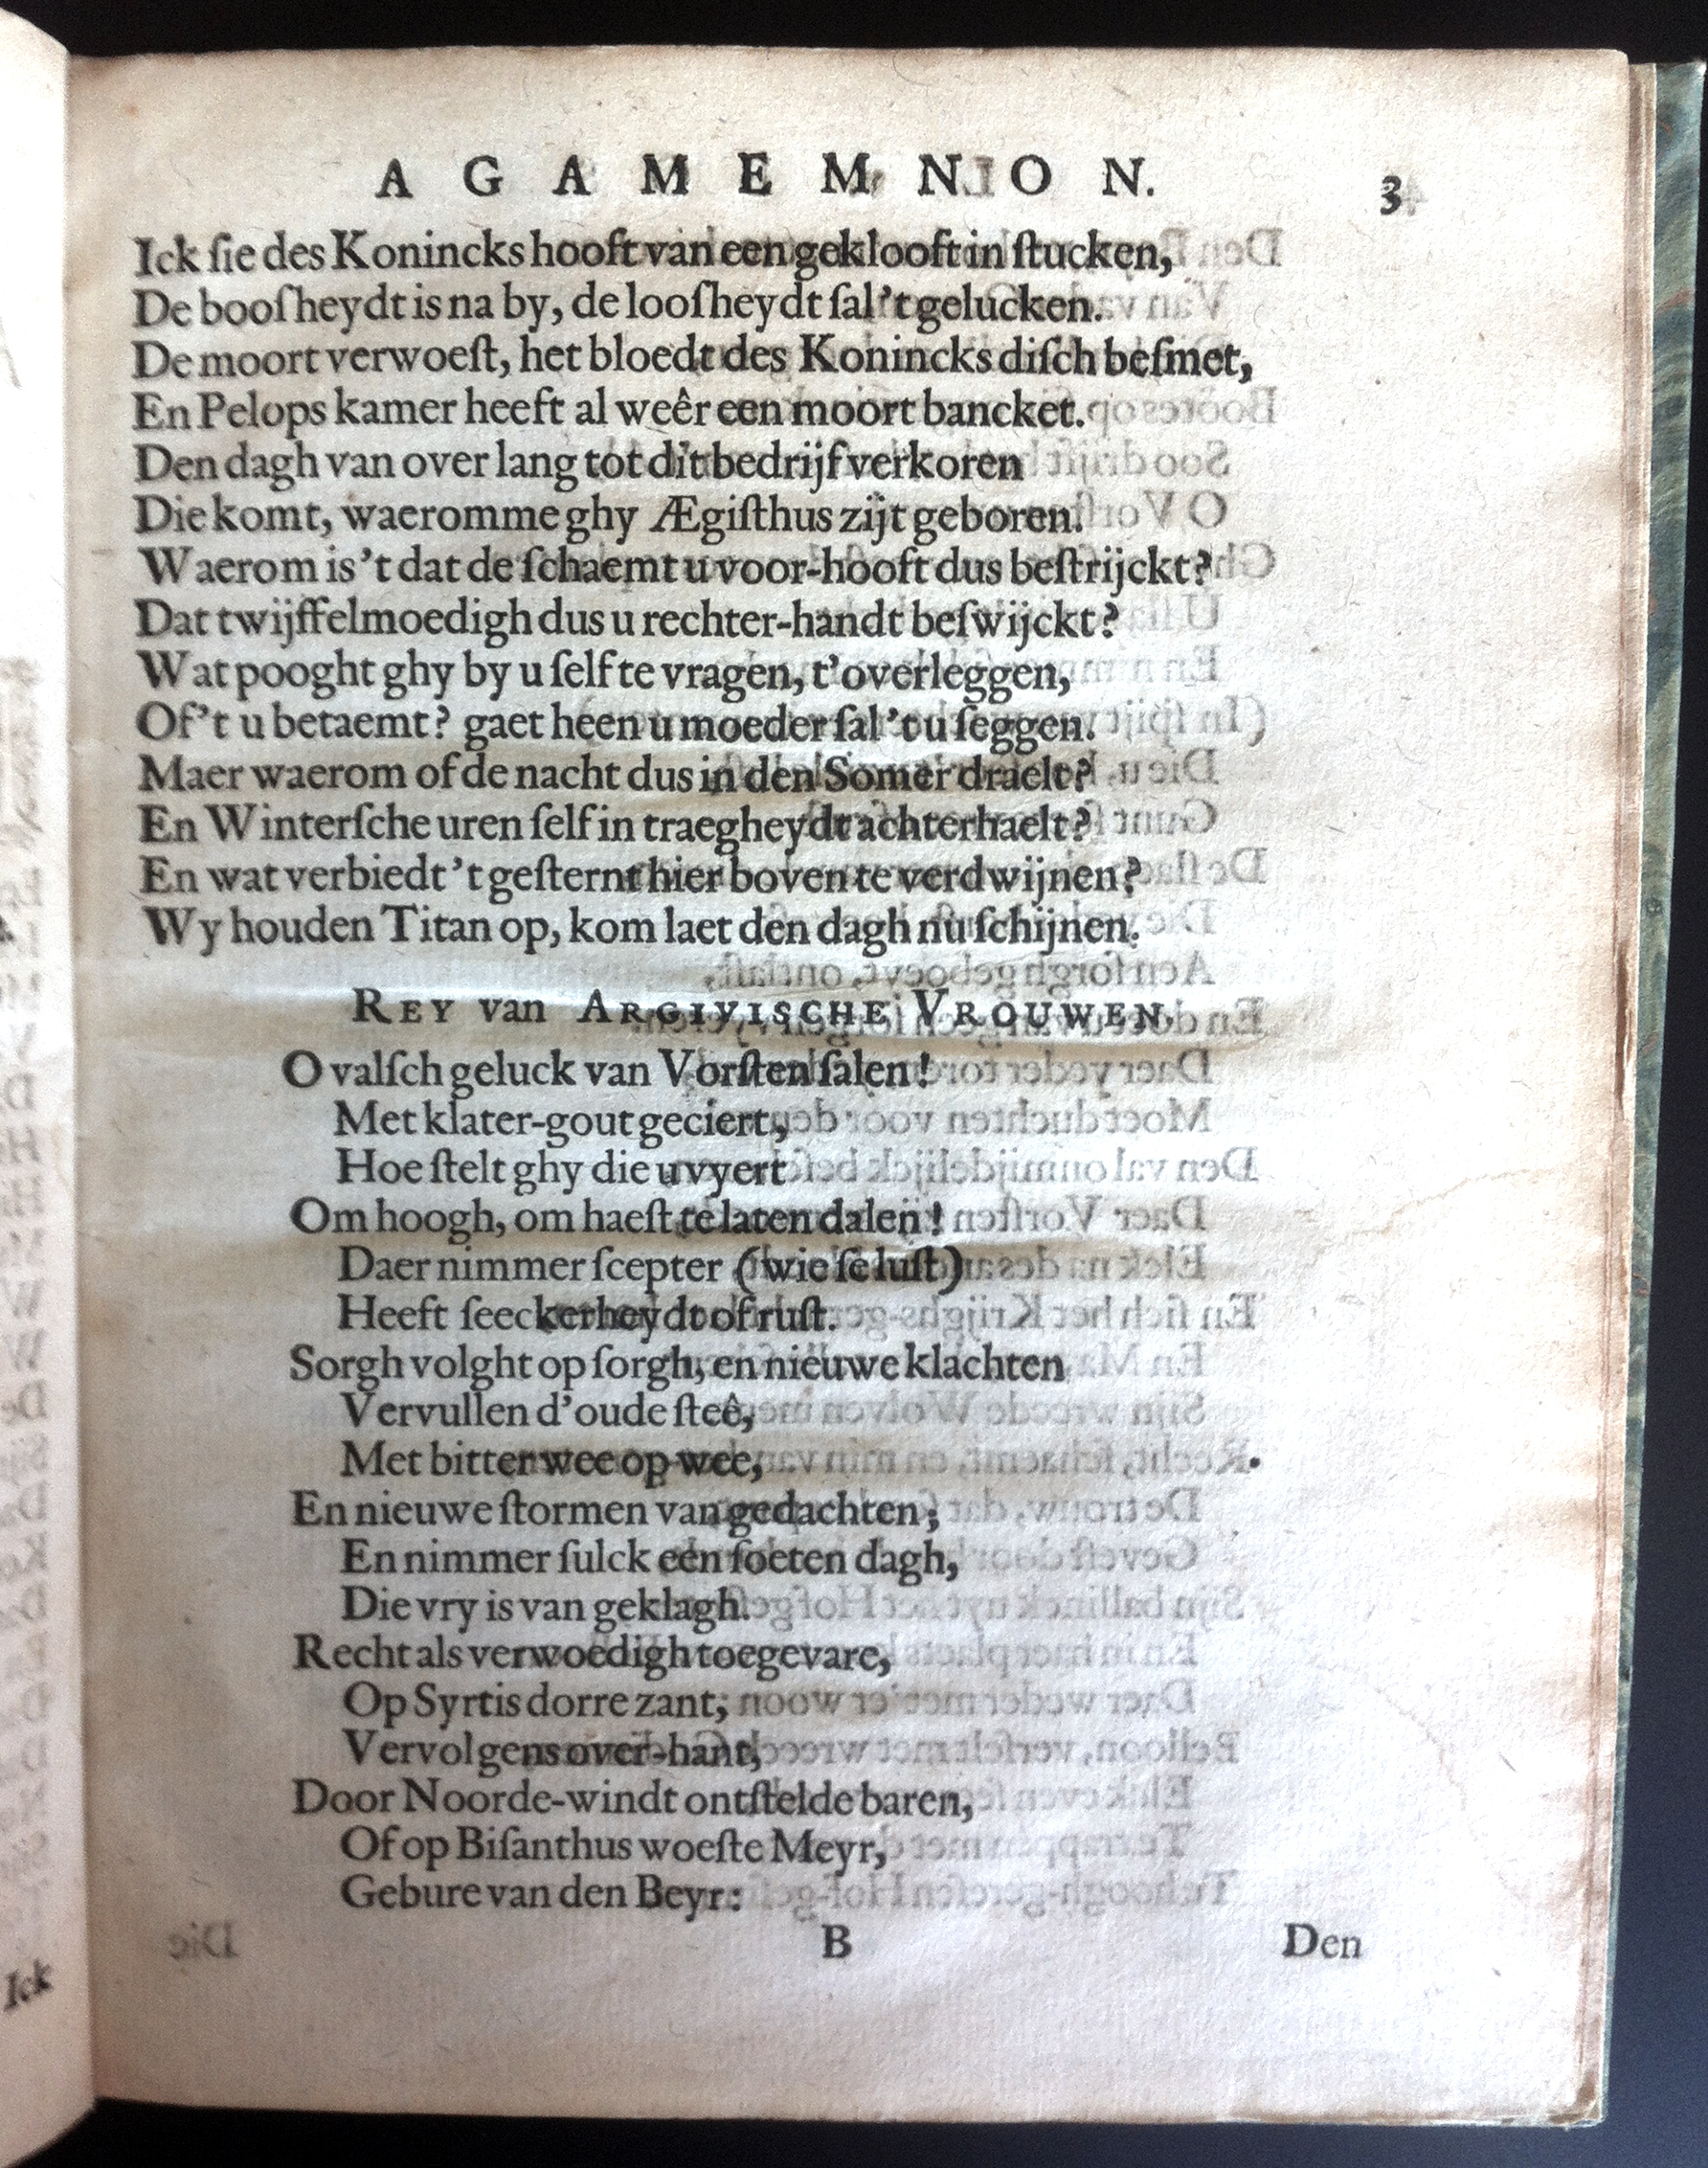 AGAMEMNON. 3
Ick ſie des Konincks hooft van een geklooft in ſtucken,
De booſheydt is na by, de looſheydt ſal 't gelucken.
De moort verwoeſt, het bloedt des Konincks diſch beſmet,
En Pelops kamer heeft al weêr een moort bancket.
Den dagh van over lang tot dit bedrijf verkoren
Die komt, waeromme ghy Ægiſthus zijt geboren.
Waerom is 't dat de ſchaemt u voor-hooft dus beſtrijckt?
Dat twijffelmoedigh dus u rechter-handt beſwijckt?
Wat pooght ghy by u ſelf te vragen, t'overleggen,
Of 't u betaemt? gaet heen u moeder ſal 't u ſeggen.
Maer waerom of de nacht dus in den Somer draelt?
En Winterſche uren ſelf in traegheydt achterhaelt?
En wat verbiedt 't geſternt hier boven te verdwijnen?
Wy houden Titan op, kom laet den dagh nu ſchijnen.
REY van ARGIVISCHE VROUWEN.
O valſch geluck van Vorſten ſalen!
Met klater-gout geciert,
Hoe ſtelt ghy die u vyert
Om hoogh, om haeſt te laten dalen!
Daer nimmer ſcepter (wie ſe luſt)
Heeft ſeeckerheydt of ruſt.
Sorgh volght op ſorgh, en nieuwe klachten
Vervullen d'oude ſteê,
Met bitter wee op wee,
En nieuwe ſtormen van gedachten;
En nimmer ſulck een ſoeten dagh,
Die vry is van geklagh.
Recht als verwoedigh toegevare,
Op Syrtis dorre zant,
Vervolgens over-hant,
Door Noorde-windt ontſtelde baren,
Of op Biſanthus woeſte Meyr,
Gebure van den Beyr:
B Den
Ick